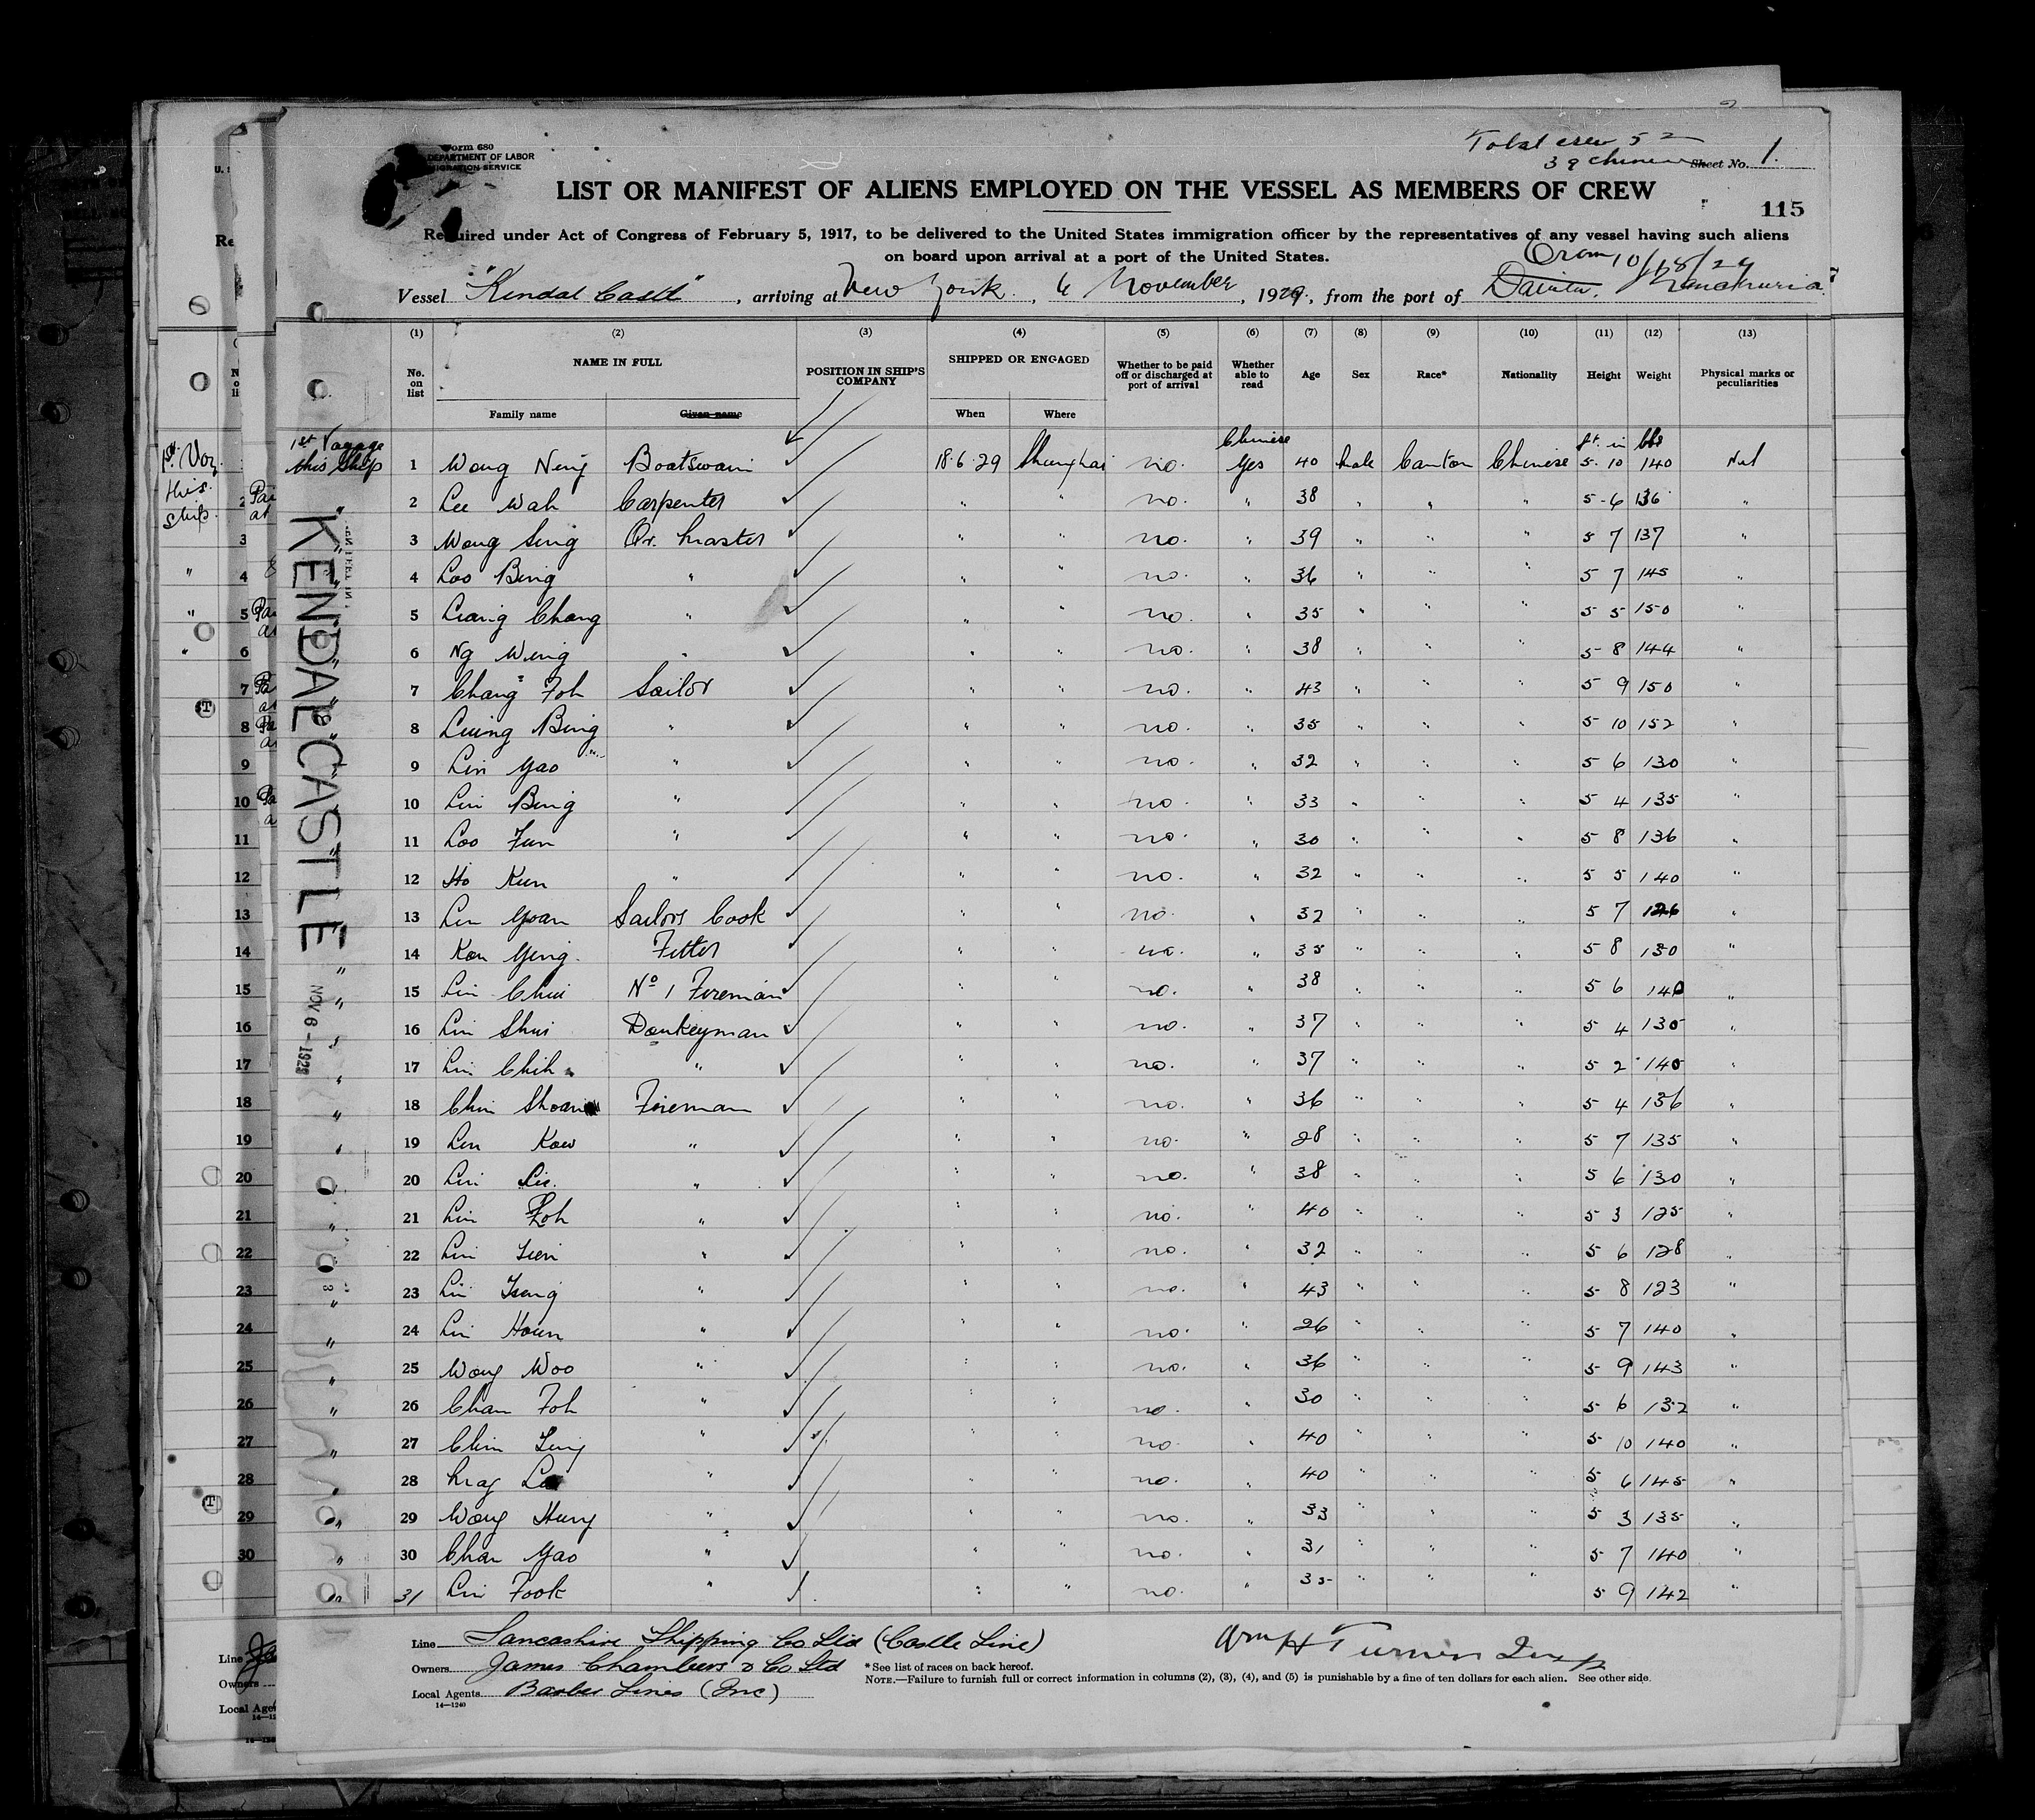 Total crew 52
39 Chinese Sheet No. 1.
Form 680
DEPARTMENT OF LABOR
IMMIGRATION SERVICE
LIST OR MANIFEST OF ALIENS EMPLOYED ON THE VESSEL AS MEMBERS OF CREW
115
Required under Act of Congress of February 5, 1917, to be delivered to the United States immigration officer by the representatives of any vessel having such aliens
on board upon arrival at a port of the United States.
Vessel "Kendal Castle", arriving at New York, 6 November, 1929, from the port of
(1) (2) (3) (4) (5) (6) (7) (8) (9) (10) (11) (12) (13)
No. on list NAME IN FULL POSITION IN SHIP'S COMPANY SHIPPED OR ENGAGED Whether to be paid off or discharged at port of arrival Whether able to read Age Sex Race* Nationality Height Weight Physical marks or peculiarities
Family name Given name When Where
1st Voyage this Ship
Chinese ft. in lbs
1 Wong Ning Boatswain 18.6.29 Shanghai no. Yes 40 Male Canton Chinese 5 10 140 Nil
2 Lee Wah Carpenter " " no. " 38 " " " 5 6 136 "
3 Wong Sing Qr. Master " " no. " 39 " " " 5 7 137 "
4 Loo Bing " " " no. " 36 " " " 5 7 145 "
5 Liang Chang " " " no. " 35 " " " 5 5 150 "
6 Ng Wing " " " no. " 38 " " " 5 8 144 "
7 Chang Foh Sailor " " no. " 43 " " " 5 9 150 "
8 Bing " " " no. " 35 " " " 5 10 152 "
9 Lin Yao " " " no. " 32 " " " 5 6 130 "
10 Lin Bing " " " no. " 33 " " " 5 4 135 "
11 Loo Fun " " " no. " 30 " " " 5 8 136 "
12 Ho Kun " " " no. " 32 " " " 5 5 140 "
13 Lin Yoan Sailors Cook " " no. " 32 " " " 5 7 126 "
14 Kon Ying Fitter " " no. " 35 " " " 5 8 130 "
15 Lin Chui No 1 Fireman " " no. " 38 " " " 5 6 140 "
16 Lin Shui Donkeyman " " no. " 37 " " " 5 4 135 "
17 Lin Chih " " " no. " 37 " " " 5 2 145 "
18 Chin Fireman " " no. " 36 " " " 5 4 136 "
19 Lin Kow " " " no. " 28 " " " 5 7 135 "
20 Lin Lie " " " no. " 38 " " " 5 6 130 "
21 Lin Foh " " " no. " 40 " " " 5 3 125 "
22 Lin " " " no. " 32 " " " 5 6 128 "
23 Lin Tseng " " " no. " 43 " " " 5 8 123 "
24 Lin Houn " " " no. " 26 " " " 5 7 140 "
25 Wong Woo " " " no. " 36 " " " 5 9 143 "
26 Chan Foh " " " no. " 30 " " " 5 6 132 "
27 Chin " " " no. " 40 " " " 5 10 140 "
28 " " " no. " 40 " " " 5 6 145 "
29 Wong Hung " " " no. " 33 " " " 5 3 135 "
30 Chan Yao " " " no. " 31 " " " 5 7 140 "
31 Lin Fook " " " no. " 35 " " " 5 9 142 "
KENDAL CASTLE
NOV 6 - 1929
Line Lancashire Shipping Co Ltd (Castle Line)
Owners James Chambers & Co Ltd
Local Agents Barber Lines (Inc)
14—1240
Wm H Turner Insp
*See list of races on back hereof.
NOTE.—Failure to furnish full or correct information in columns (2), (3), (4), and (5) is punishable by a fine of ten dollars for each alien. See other side.
1st Voy.
this
ship.